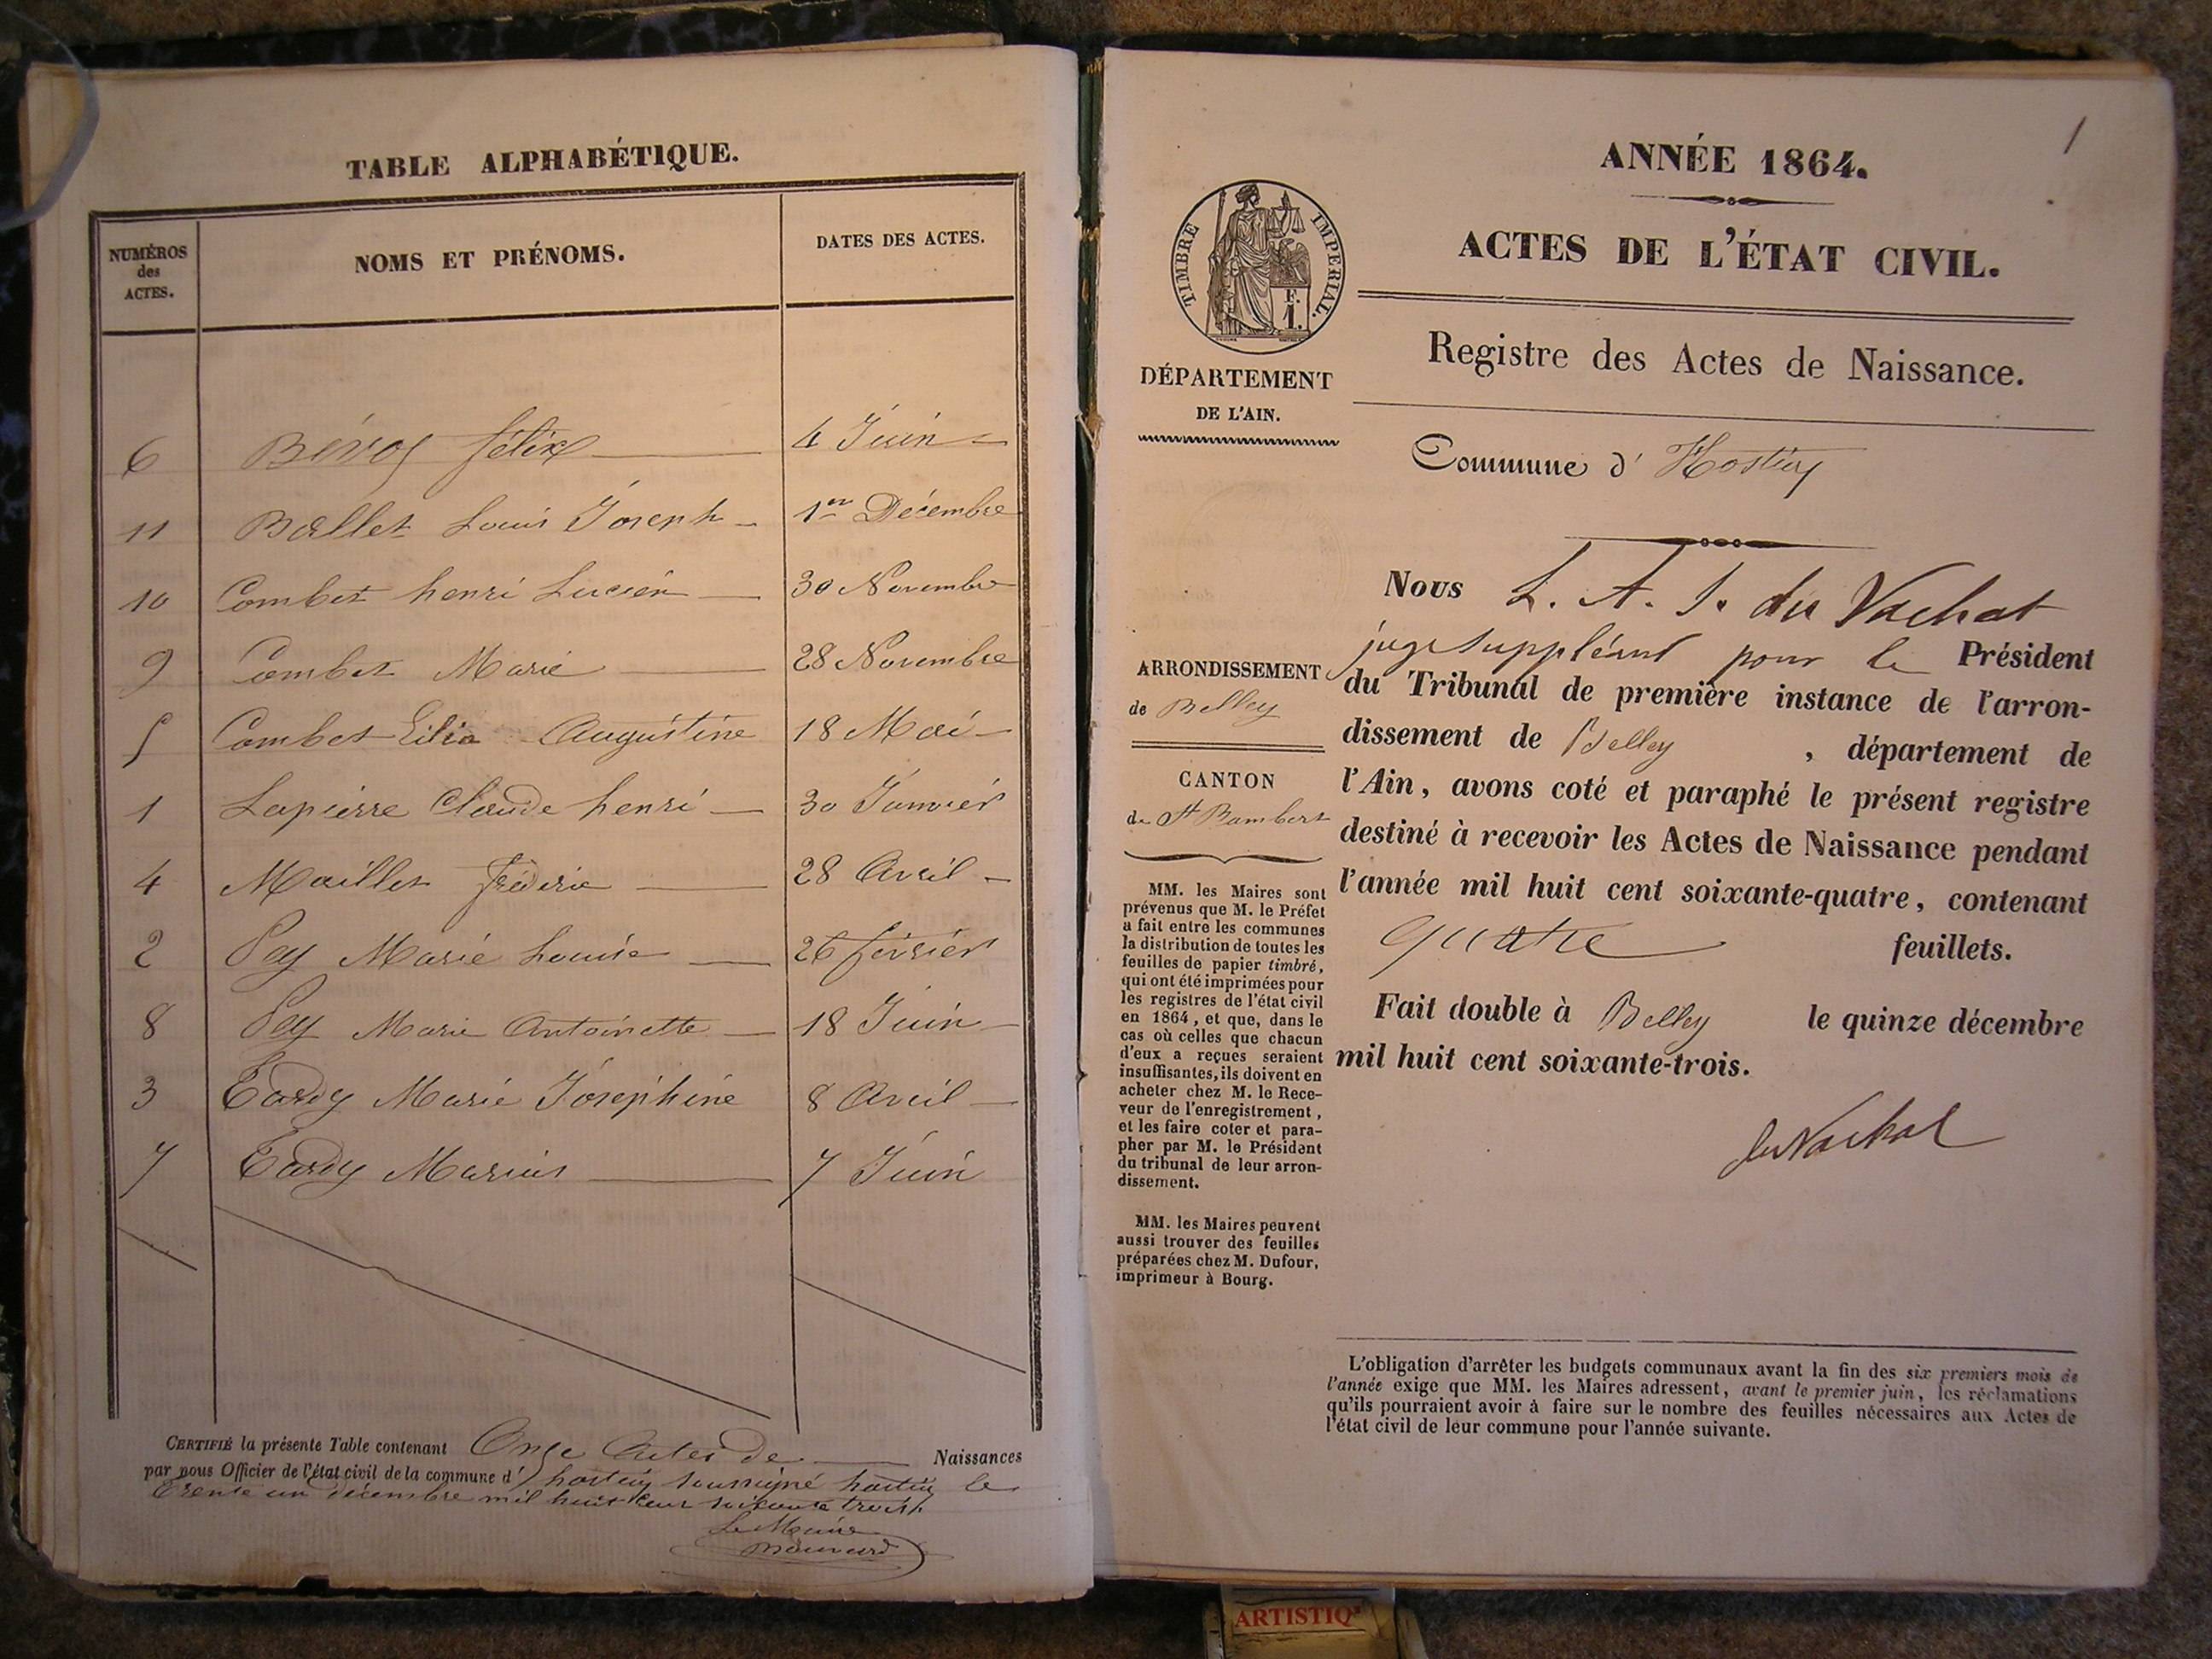 TABLE ALPHABÉTIQUE.
NUMÉROS
des
ACTES.
NOMS ET PRÉNOMS.
DATES DES ACTES.
6 félix 4 Juin
11 Ballet Louis Joseph 1er Décembre
10 Combet henri Lucien 30 Novembre
9 Combet Marie 28 Novembre
5 Combet Augustine 18 Mai
1 Lapierre Claude henri 30 Janvier
4 Maillet frédéric 28 Avril
2 Pey Marie Louise 26 février
8 Pey Marie Antoinette 18 Juin
3 Tardy Marie Joséphine 8 Avril
7 Tardy Marius 7 Juin
CERTIFIÉ la présente Table contenant Onze Actes de Naissances
par nous Officier de l'état civil de la commune d' hostiaz soussigné hostiaz le
trente un décembre mil huit cent soixante trois
Le Maire
1
ANNÉE 1864.
ACTES DE L'ÉTAT CIVIL.
Registre des Actes de Naissance.
Commune d' Hostiaz
TIMBRE IMPERIAL.
F.
1.
DÉPARTEMENT
DE L'AIN.
ARRONDISSEMENT
de Belley
CANTON
de St Rambert
MM. les Maires sont
prévenus que M. le Préfet
a fait entre les communes
la distribution de toutes les
feuilles de papier timbré,
qui ont été imprimées pour
les registres de l'état civil
en 1864, et que, dans le
cas où celles que chacun
d'eux a reçues seraient
insuffisantes, ils doivent en
acheter chez M. le Rece-
veur de l'enregistrement,
et les faire coter et para-
pher par M. le Président
du tribunal de leur arron-
dissement.
MM. les Maires peuvent
aussi trouver des feuilles
préparées chez M. Dufour,
imprimeur à Bourg.
Nous L. A. J. du Vachat
juge suppléant pour le Président
du Tribunal de première instance de l'arron-
dissement de Belley, département de
l'Ain, avons coté et paraphé le présent registre
destiné à recevoir les Actes de Naissance pendant
l'année mil huit cent soixante-quatre, contenant
quatre feuillets.
Fait double à Belley le quinze décembre
mil huit cent soixante-trois.
du Vachat
L'obligation d'arrêter les budgets communaux avant la fin des six premiers mois de
l'année exige que MM. les Maires adressent, avant le premier juin, les réclamations
qu'ils pourraient avoir à faire sur le nombre des feuilles nécessaires aux Actes de
l'état civil de leur commune pour l'année suivante.
ARTISTIQ